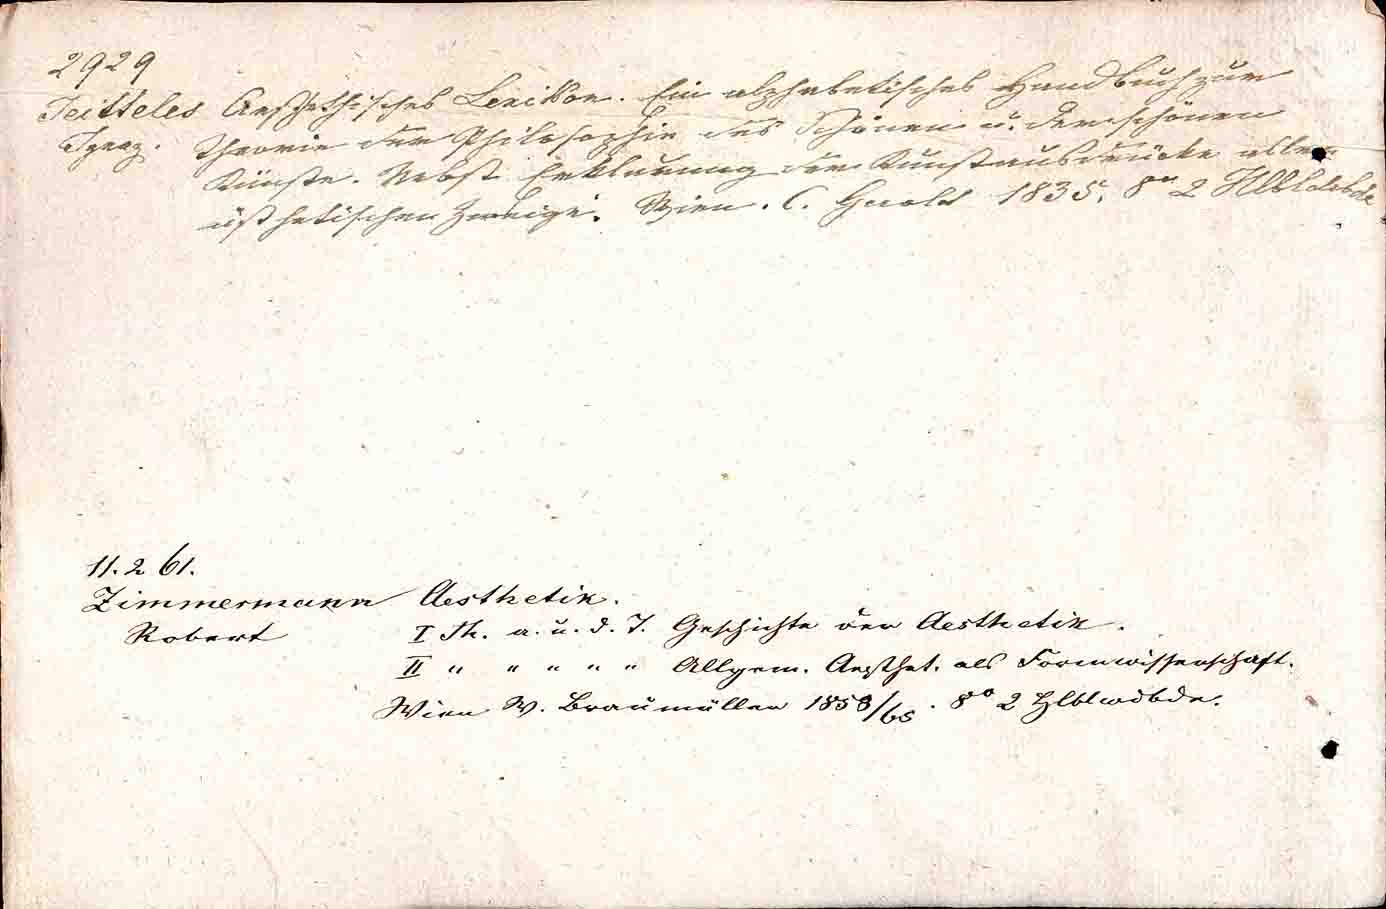 2929
Jeitteles Aesthetisches Lexikon. Ein alphabetisches Handbuch zur
Ignaz. Theorie der Philosophie des Schönen u. der schönen
Künste. Nebst Erklärung der Kunstausdrücke aller
ästhetischen Zweige. Wien. C. Gerold 1835. 8° 2 Hlbldrbde
11. 2 61.
Zimmermann Aesthetik.
Robert I Th. a. u. d. T. Geschichte der Aesthetik.
II " " " " " Allgem. Aesthet. als Formwissenschaft.
Wien W. Braumüller 1858/65. 8° 2 Hlblwdbde.